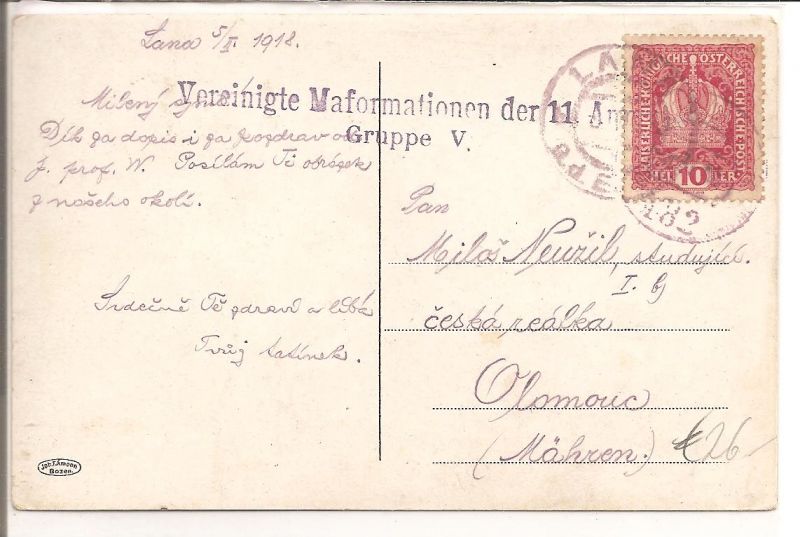 Lana 5/II. 1918.
Milený synu!
Dík za dopis i za pozdrav od
p. prof. W. Posílám Ti obrázek
z našeho okolí.
Srdečně Tě zdraví a líbá
Tvůj tatínek.
Vereinigte Maformationen der 11. Arm
Gruppe V.
LA
KAISERLICHE KÖNIGLICHE ÖSTERREICHISCHE POST
HELLER
10
Pan
Miloš Neužil, studující
I. b
česká reálka
Olomouc
(Mähren)
€26-
Joh. F. Amonn
Bozen.